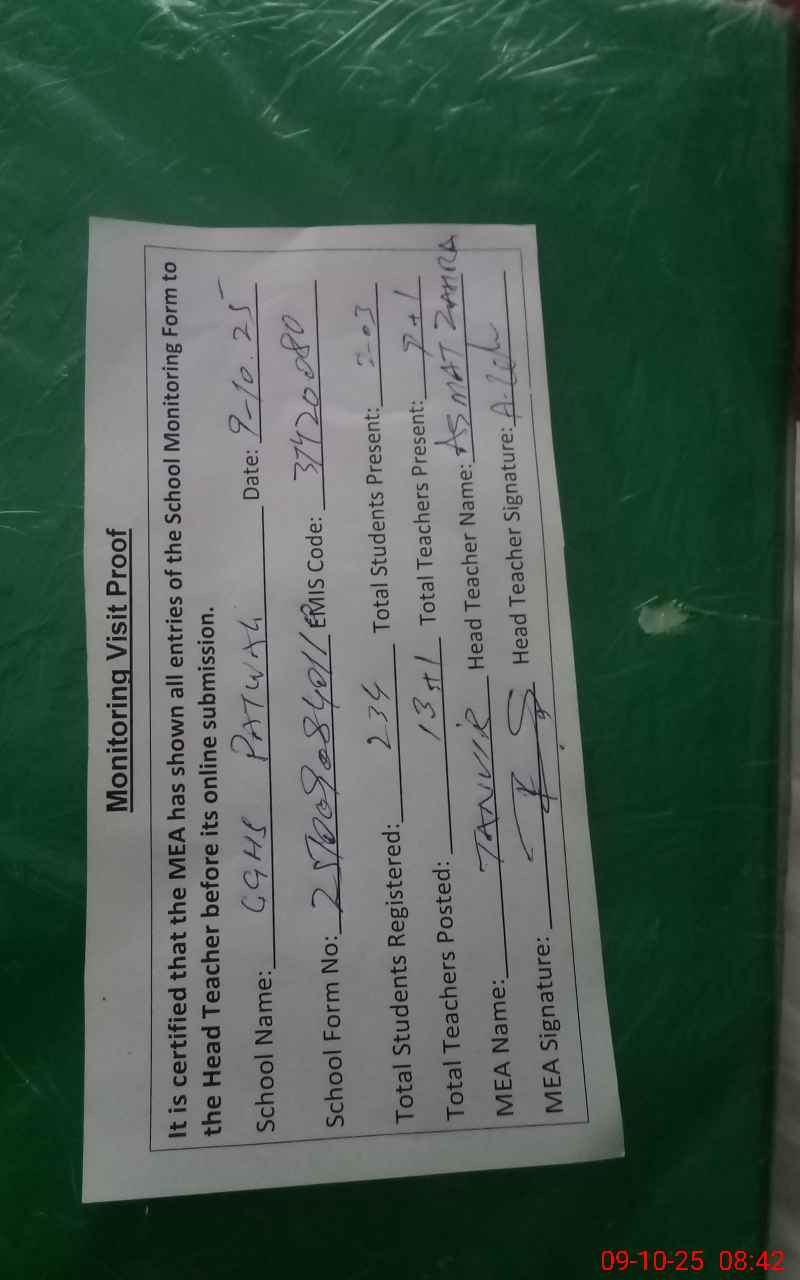 Monitoring Visit Proof
It is certified that the MEA has shown all entries of the School Monitoring Form to
the Head Teacher before its online submission.
School Name: GGHS PATWALI Date: 9-10.25
School Form No: EMIS Code: 37420080
Total Students Registered: 234 Total Students Present: 203
Total Teachers Posted: 13+1 Total Teachers Present: 9+1
MEA Name: TANVIR Head Teacher Name: ASMAT ZAHRA
MEA Signature: Head Teacher Signature:
09-10-25 08:42